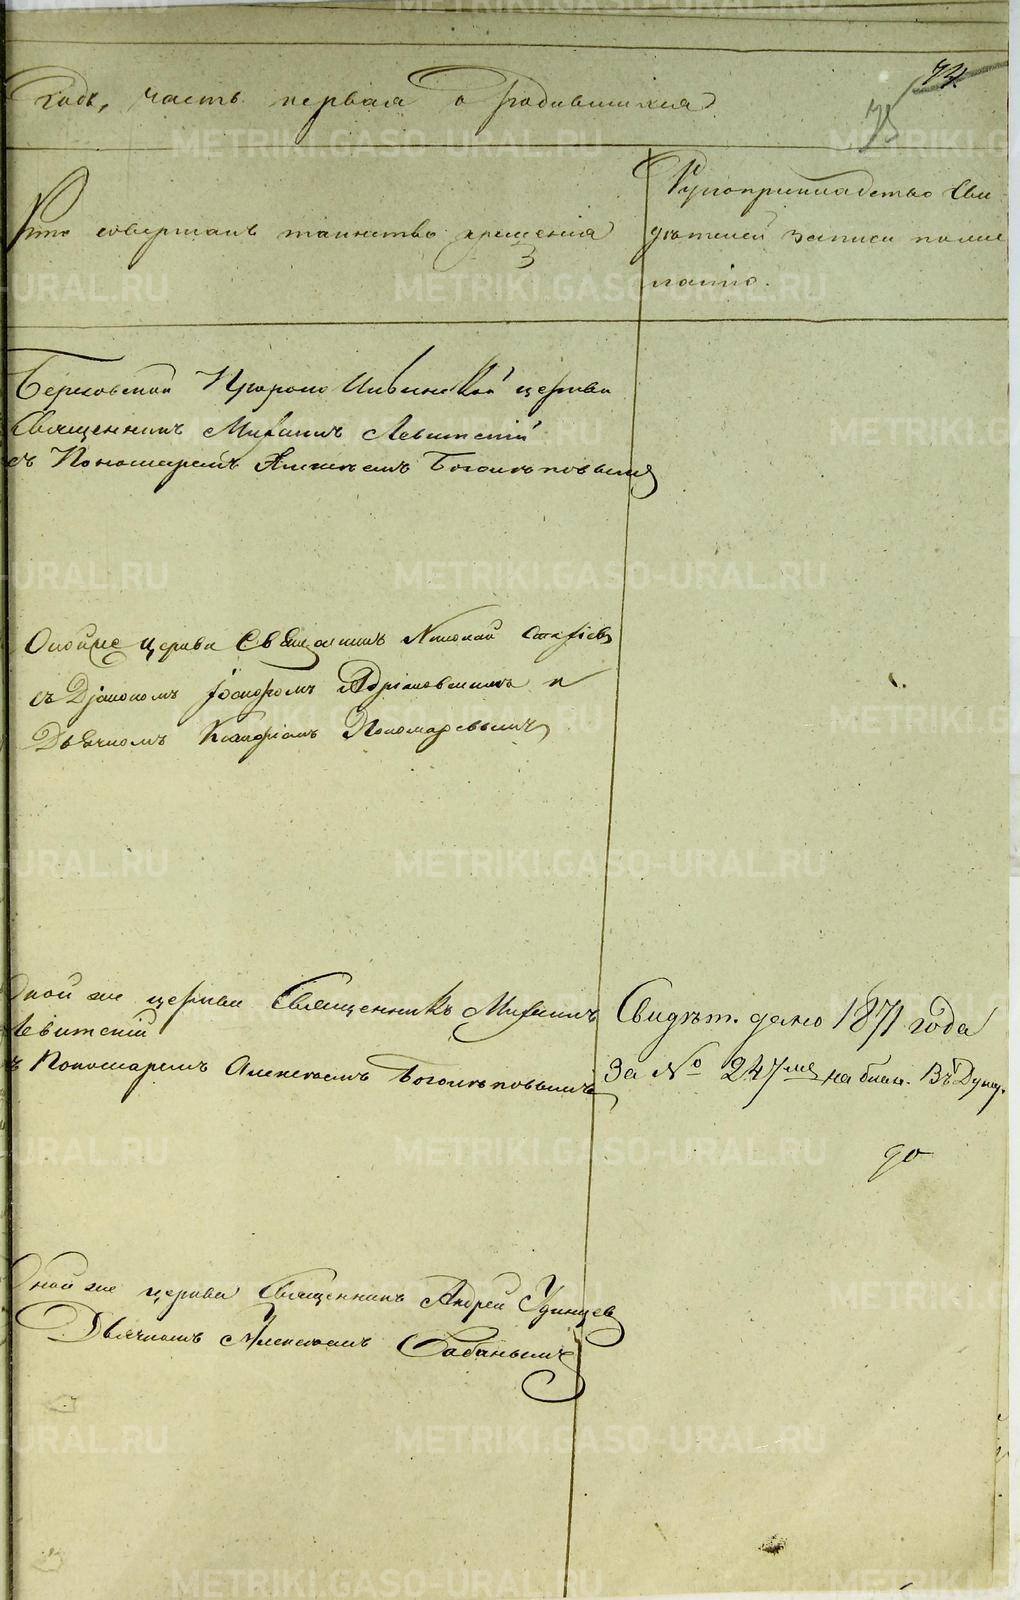 годъ, часть первая о родившихся
74
75
Кто совершалъ таинство крещенія
3
Рукоприкладство сви-
дѣтелей записи по же-
ланію.
Бериковской Пророко Ильинской церкви
Священникъ Михаилъ Левитскій
съ Пономаремъ Алексѣемъ Боголѣповымъ
Оной же церкви Священникъ Николай
съ Діакономъ Іосифомъ Адріановскимъ и
Дьячкомъ Пономаревымъ
Оной же церкви Священникъ Михаилъ
Левитскій
съ Пономаремъ Алексѣемъ Боголѣповымъ
Свидѣт. дано 1871 года
За № 247мъ на блан. Въ Духу.
Оной же церкви Священникъ Андрей Удинцевъ
Дьячкомъ Алексѣемъ Бабинымъ
METRIKI.GASO-URAL.RU